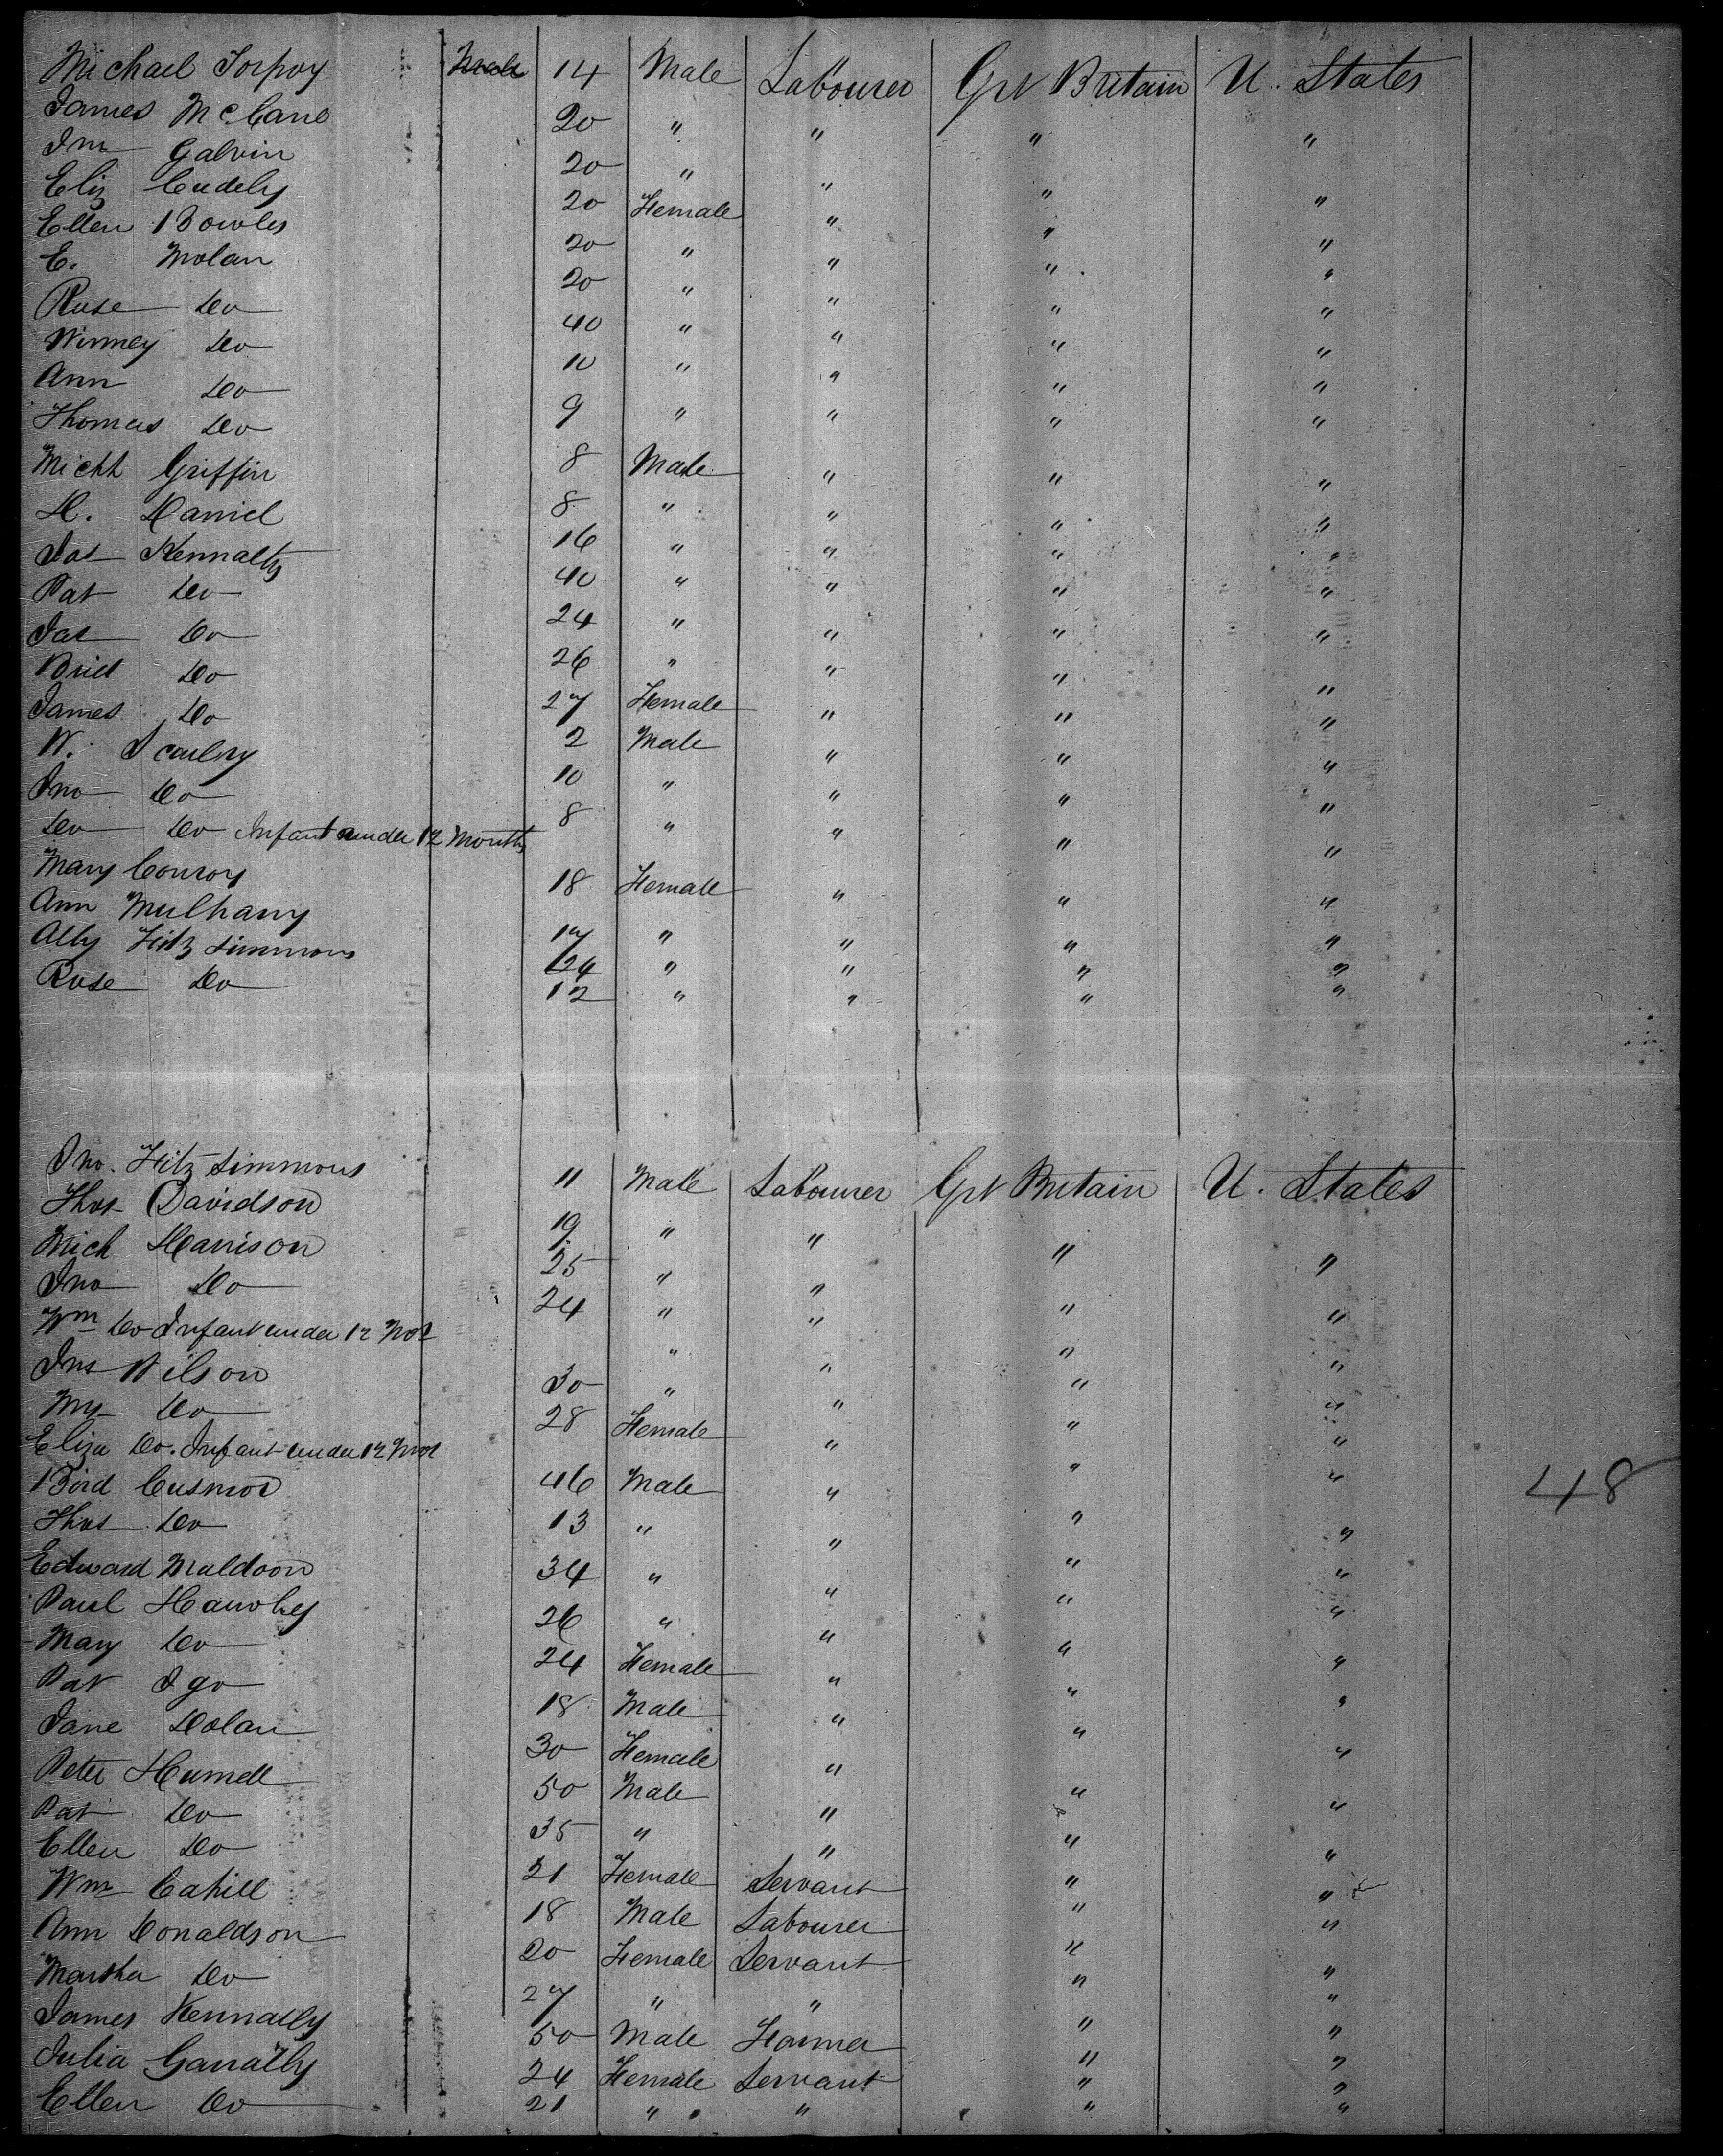 Michael Torpoy Male 14 Male Labourer Grt Britain U. States
James McCane 20 " " " "
Jno Galvin 20 " " " "
Eliz Cudely 20 Female " " "
Ellen Bowles 20 " " " "
E. Molan 20 " " " "
Rose Do 40 " " " "
Winney Do 10 " " " "
Ann Do 9 " " " "
Thomas Do 8 Male " " "
Michl Griffin 8 " " " "
D. Daniel 16 " " " "
Jas Kennalty 40 " " " "
Pat Do 24 " " " "
Jas Do 26 " " " "
Brid Do 27 Female " " "
James Do 2 Male " " "
W. Scaulny 10 " " " "
Jno Do 8 " " " "
Do Do Infant under 12 Months " "
Mary Conroy 18 Female " " "
Ann Mulhany 17 " " " "
Ally Fitz Simmons 24 " " " "
Rose Do 12 " " " "
Jno. Fitz Simmons 11 Male Labourer Grt Britain U. States
Thos Davidson 19 " " " "
Mich Harrison 25 " " " "
Jno Do 24 " " " "
Wm Do Infant under 12 Mos " " " "
Jno Wilson 30 " " " "
My Do 28 Female " " "
Eliza Do. Infant under 12 Mos
Bird Cusmos 46 Male " " " 48
Thos Do 13 " " " "
Edward Muldoon 34 " " " "
Paul Hawley 26 " " " "
Mary Do 24 Female " " "
Pat Igo 18 Male " " "
Jane Dolan 30 Female " " "
Peter Hurnell 50 Male " " "
Pat Do 35 " " " "
Ellen Do 21 Female Servant " "
Wm Cahill 18 Male Labourer " "
Ann Donaldson 20 Female Servant " "
Martha Do 27 " " " "
James Kennally 50 Male Farmer " "
Julia Garrally 24 Female Servant " "
Ellen Do 21 " " " "